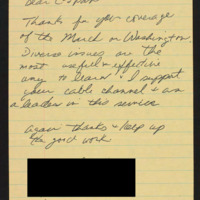 Dear C-Span
Thanks for your coverage
of the March on Washington
Diverse issues are the
most useful & effective
way to learn I support
your cable channel & as
a leader in this service
Again thanks & keep up
the good work